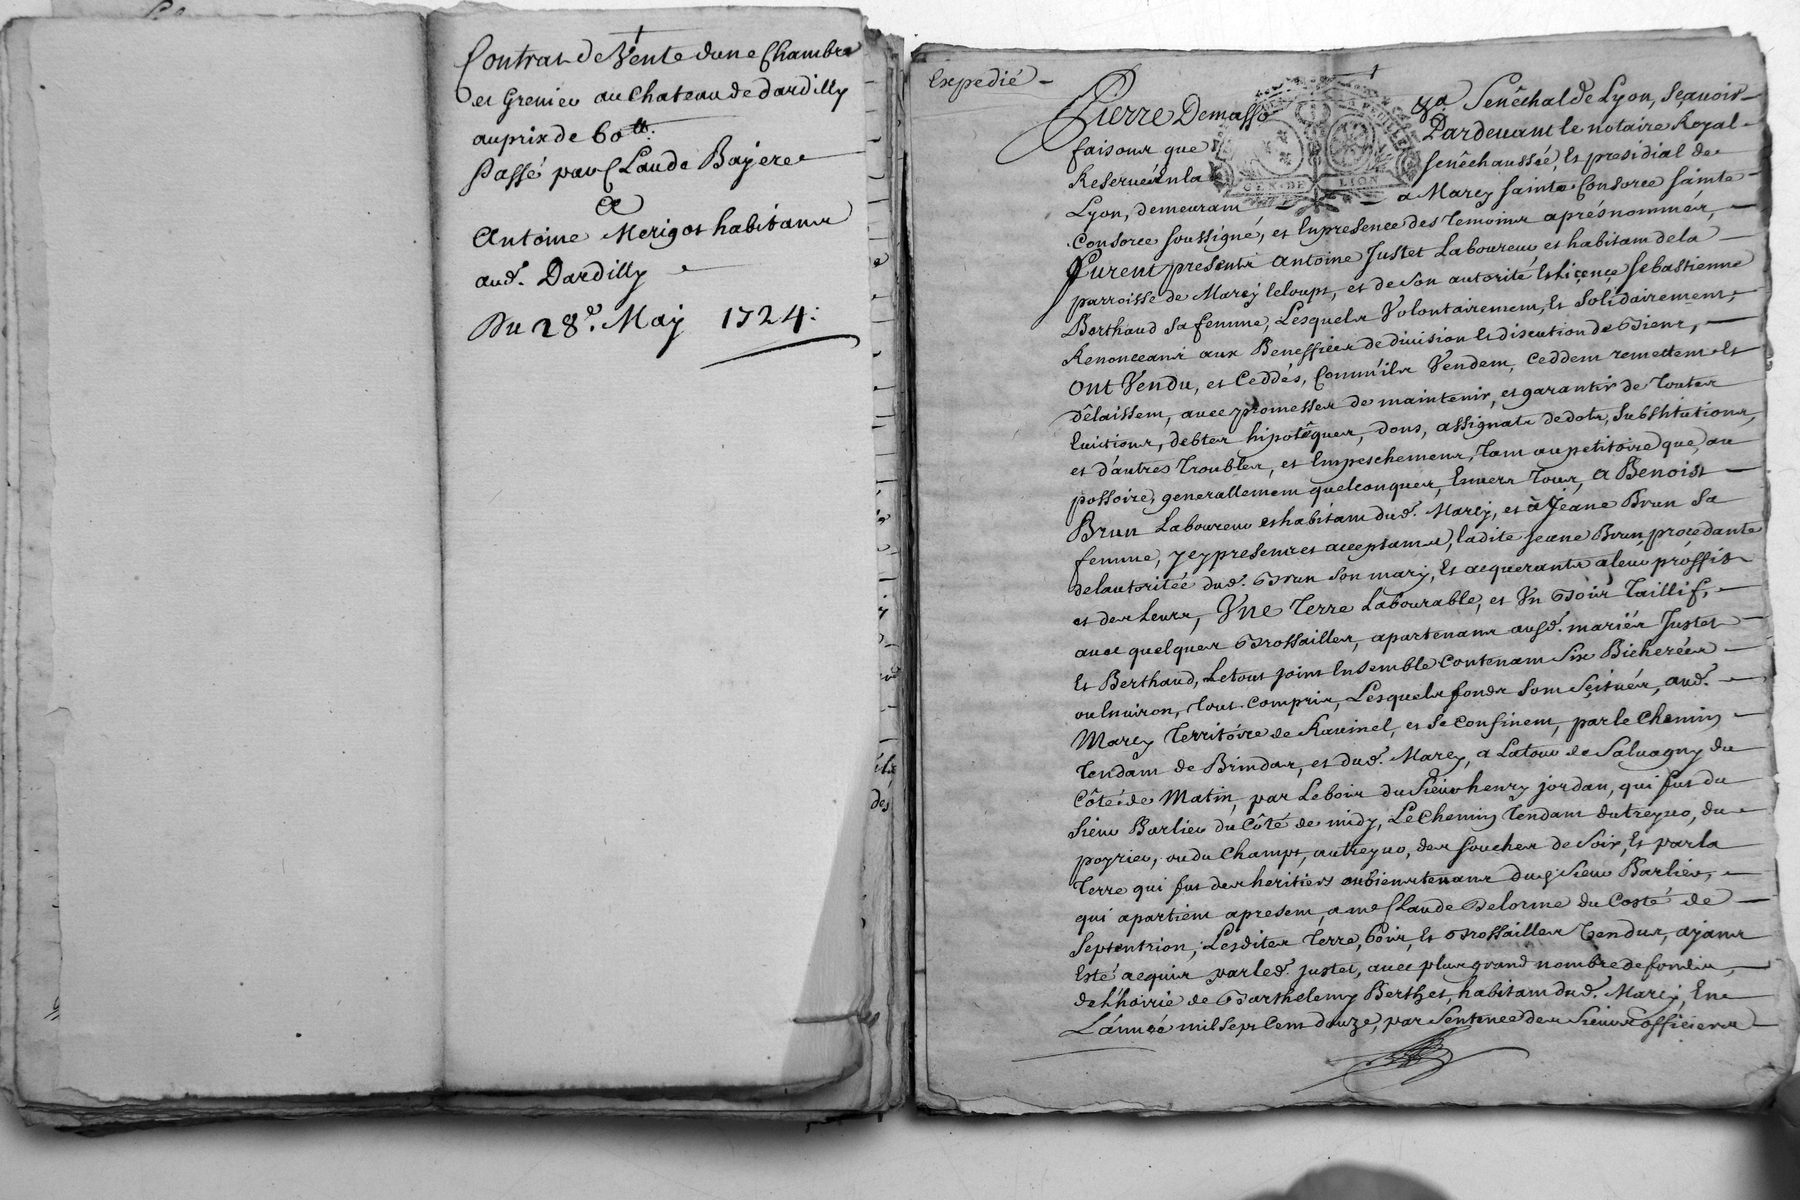 Contrat de Vente dune Chambre
et Grenier au Chateau de dardilly
au prix de 60 tt:
Passé par Claude Bajere
&
Antoine Merigot habitans
aud. Dardilly
Du 28e. May 1724:
Expedié
Pierre Demasso Sénéchal de Lyon, scavoir
faisons que Pardevant le notaire Royal
Reservé En la sénêchaussée, Et presidial de
Lyon, demeurant a Marcy sainte Consorce sainte
Consorce soussigné, et En presence des temoins aprés nommes,
Furent presents Antoine Justet Laboureur et habitant de la
parroisse de Marcy le loups, et de son autorité Et liçençe sebastienne
Berthaud sa femme, Lesquels Volontairement, Et solidairement,
Renonceans aux Beneffices de division Et discution de Biens,
Ont Vendu, et Ceddés, Comm'ils Vendent, Ceddent remettent et
délaissent, avec promesses de maintenir, et garantir de toutes
Evictions, debtes hipotêques, dons, assignats de dots, substitutions,
et d'autres troubles, et Empeschemens, tant au petitoire que au
possoire, generallement quelconques, Envers tous, A Benoist
Brun Laboureur et habitant dud. Marcy, et à Jeane Brun sa
femme, y cy presents et acceptans, ladite Jeane Brun procedante
de lautoritée dud. Brun son mary, Et acquerants a leur proffit
et des leurs, Une Terre Labourable, et Un Bois Taillif,
avec quelques Brossailles, apartenans ausd. mariés Justet
Et Berthaud, Le tout joint Ensemble contenant six Bicherées
ou Environ, tout compris, Lesquels fonds sont scitués, aud.
Marcy Territoire de Ravinel, et se confinent, par le chemin
tendant de Brindas, et dud. Marcy, a La tour de Salvagny du
Côté de Matin, par Le bois du sieur henry jordan, qui fut du
sieur Barlier du Côté de midy, Le Chemin tendant du treyvo, du
poyrier, ou du Champt, au treyvo, des souches de soir, Et par la
Terre qui fut des heritiers ou bien tenans dud. sieur Barlier,
qui apartient apresent, a me Claude Delorme du Costé de
septentrion; Lesdites terre, bois, Et Brossailles Vendus, ajans
Esté acquis par led. justet, avec plus grand nombre de fonds,
de L'hoirie de Barthelemy Berthet, habitant dud. Marcy, En
L'année mil sept cent douze, par sentence des sieurs officiers